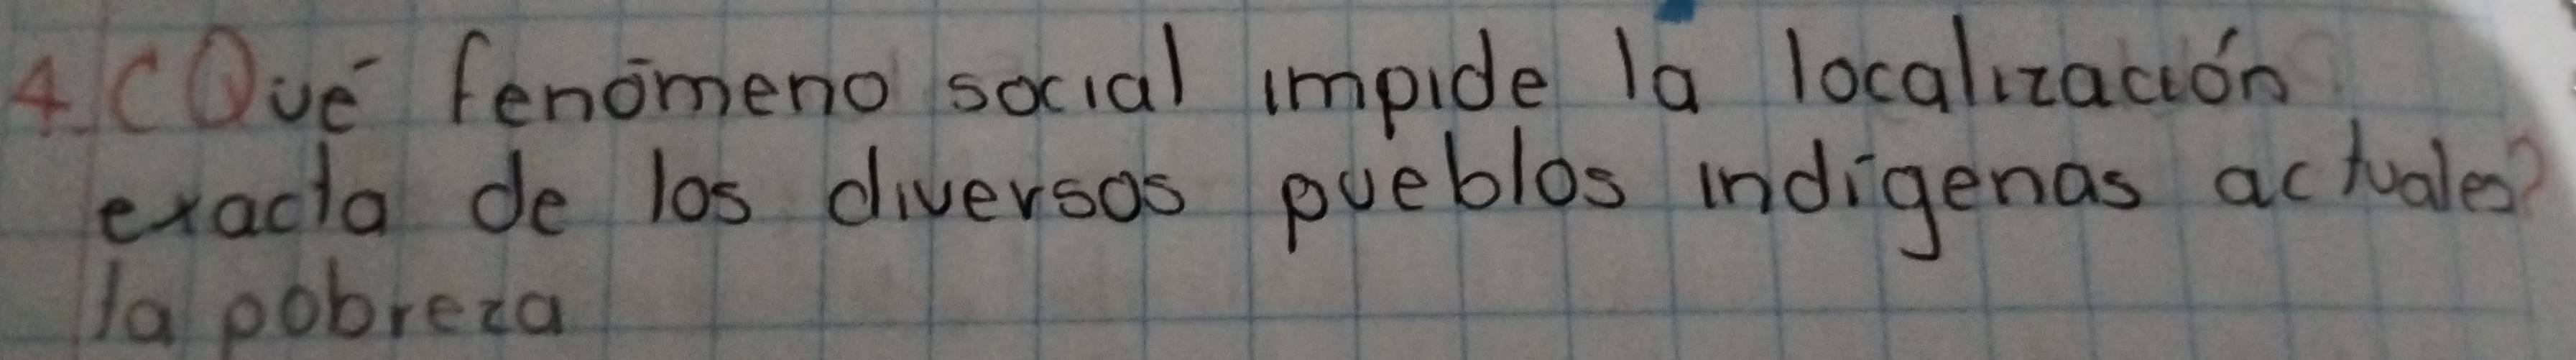 4. ¿Qué fenómeno social impide la localización
exacta de los diversos pueblos indígenas actuales?
la pobreza